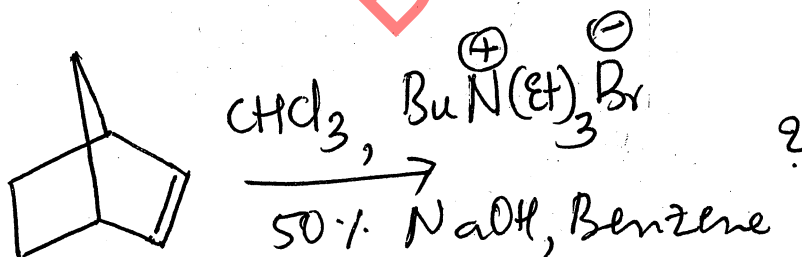 CHCl3, BuN(Et)3Br ⊕ ⊖
50% NaOH, Benzene
?